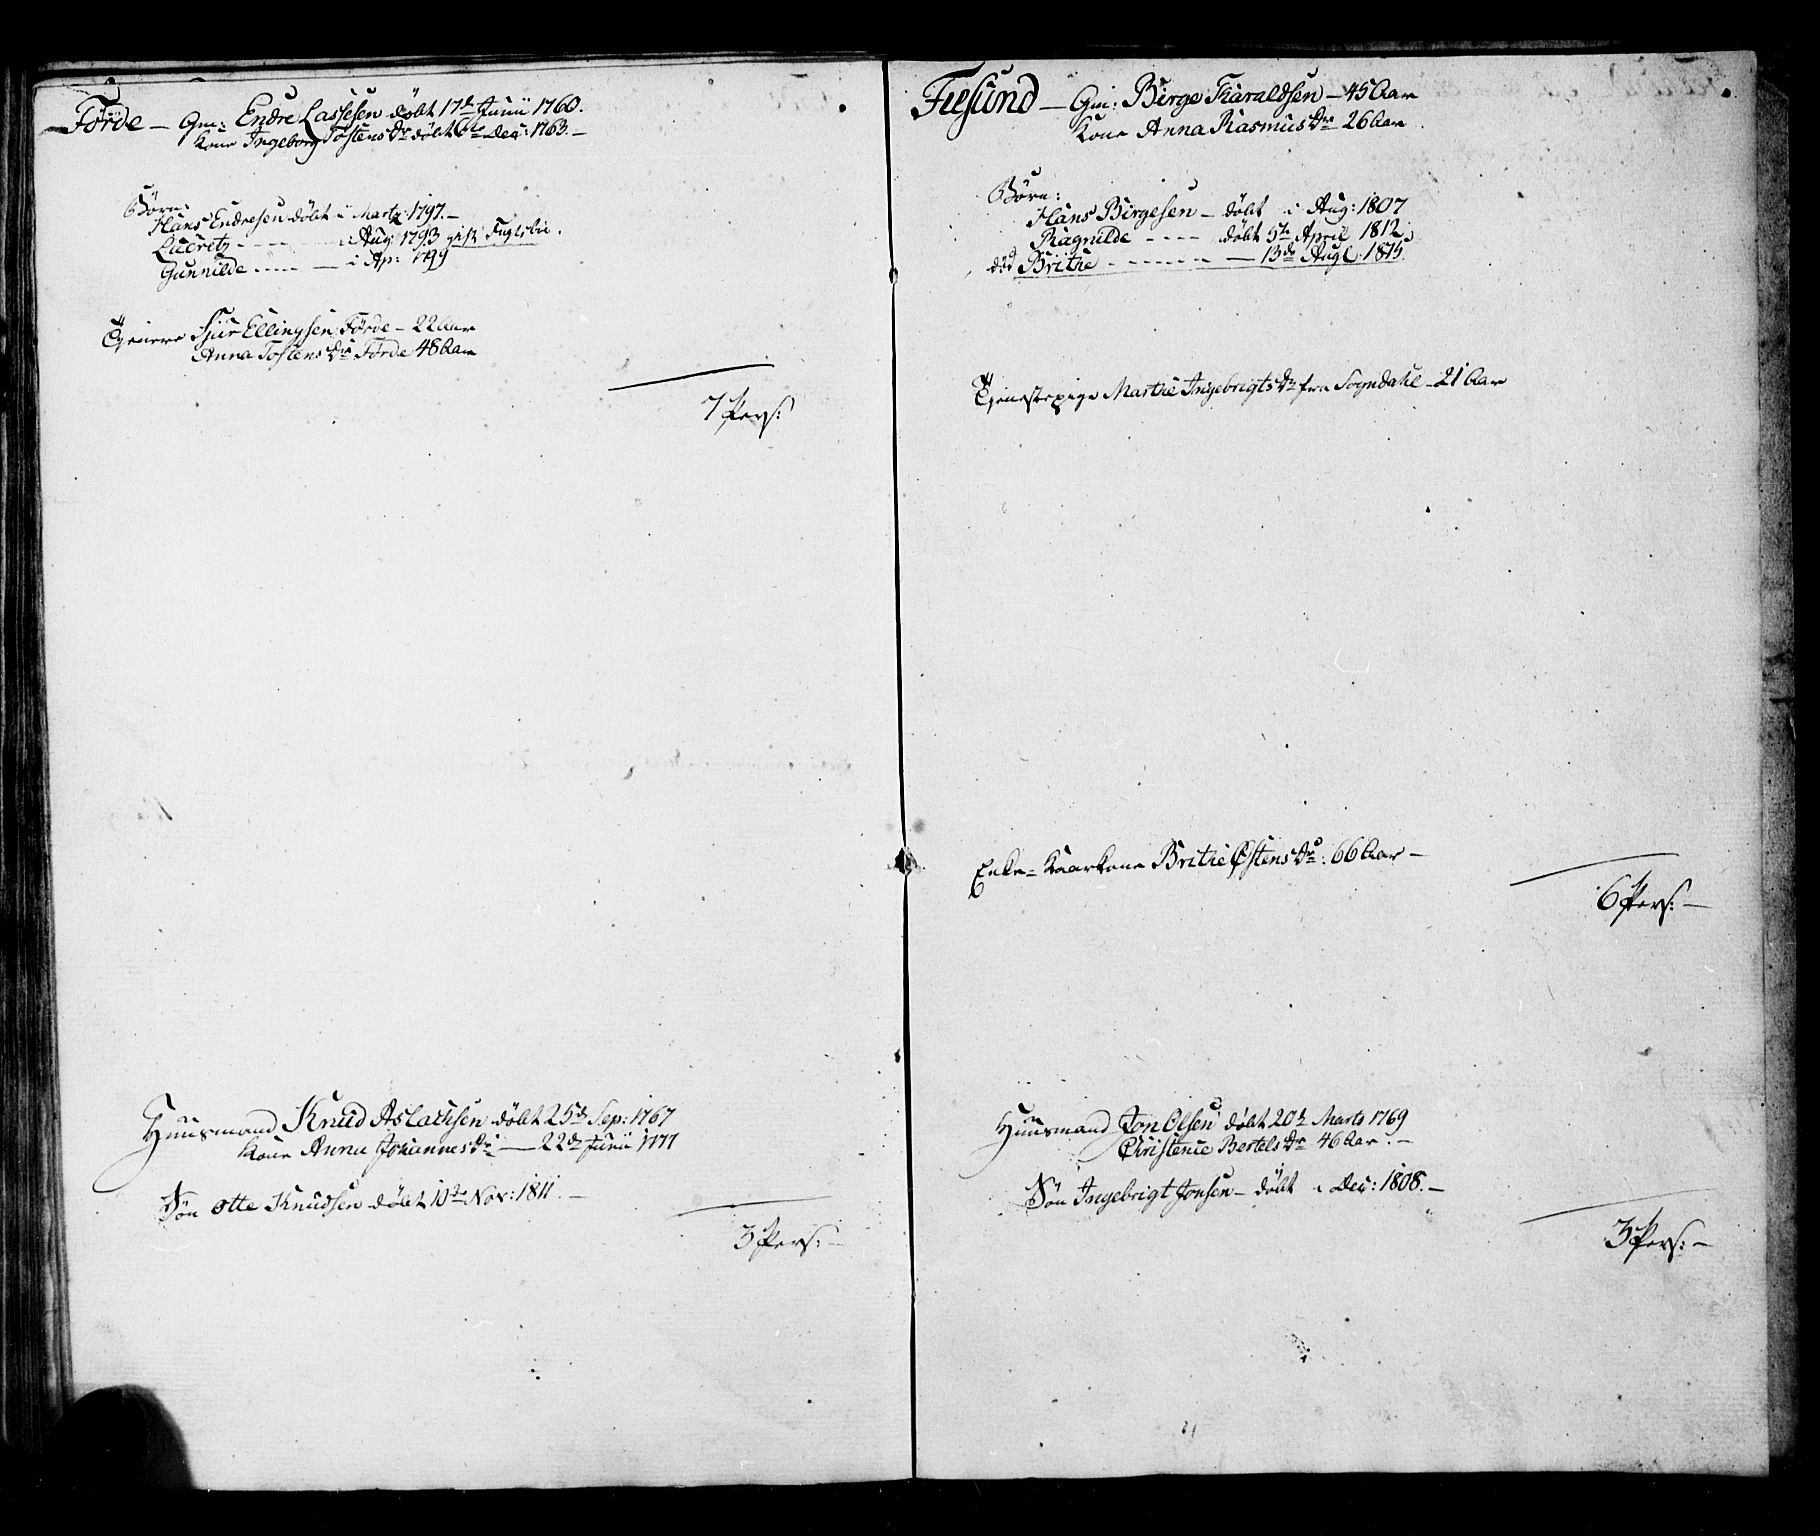 Förde — Gm: Endre Lassesen döbt 17de Junii 1760.
Kone Ingeborg Tostens Dr döbt 6te Dec: 1763. —
Börn:
Hans Endresen döbt i Marty 1797. —
Lucretz - - - - i Aug: 1793 gift
Gunnilde - - - - — i Ap: 1799
Tjenere Siur Ellingsen Förde — 22 Aar
Anna Tostens Dr Förde 48 Aar
7 Pers:
Huusmand Knud Aslachsen döbt 25de Sep: 1767
Kone Anna Johannes Dr — 22de Junii 1777
Sön Otte Knudsen döbt 10de Nov: 1811. —
3 Pers: —
Fresund — Gm: Birge Haraldsen — 45 Aar
Kone Anna Rasmus Dr 26 Aar
Börn:
Hans Birgesen — döbt i Aug: 1807
Ragnilde - - - - döbt 5te April 1812.
död Brithe - - - - - - — 13de Aug. 1815.
Tjenestepige Marthe Ingebrigts Dr fra Sogndahl — 21 Aar
Enke = Kaarkone Brithe Östens Dr: 66 Aar —
6 Pers: —
Huusmand Jon Olsen döbt 20de Marts 1769
Christence Bertels Dr 46 Aar. —
Sön Ingebrigt Jonsen — döbt i Dec: 1808. —
3 Pers: —